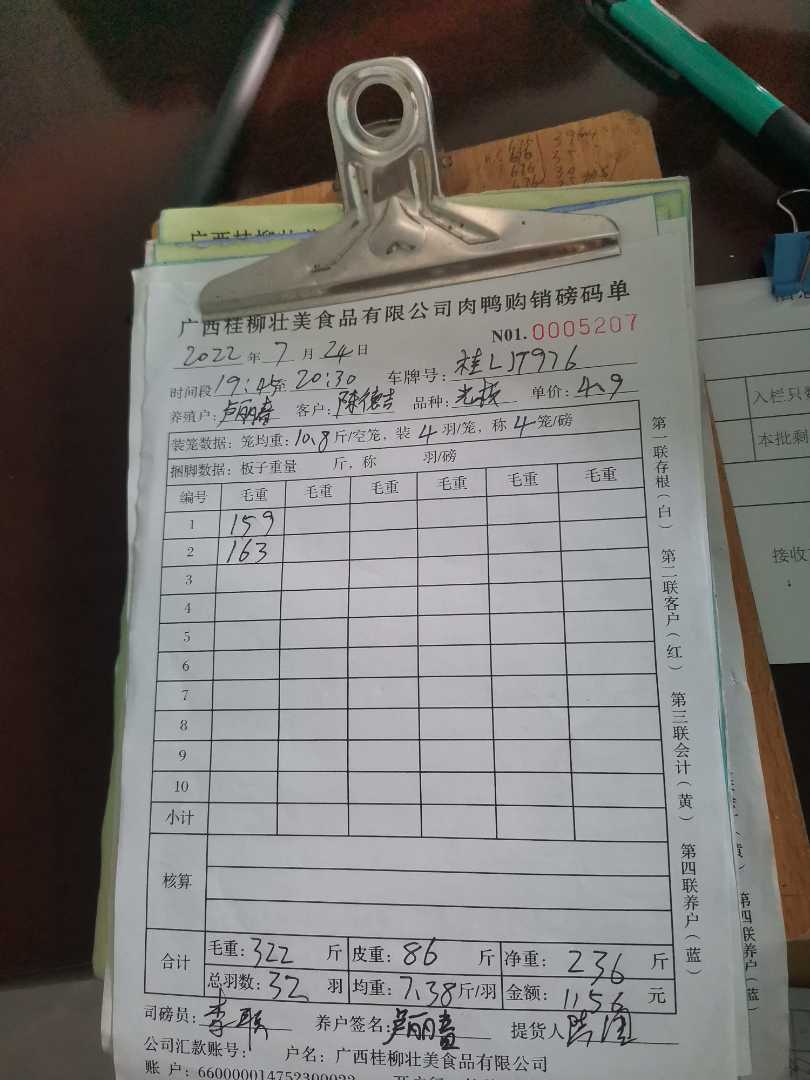 广西桂柳壮美食品有限公司肉鸭购销磅码单
N01.0005207
2022 年 7 月 24 日
时间段 19:45 至 20:30 车牌号: 桂LJT976
养殖户: 卢丽春 客户: 陈德吉 品种: 单价: 4.9
装笼数据: 笼均重: 10.8 斤/空笼, 装 4 羽/笼, 称 4 笼/磅
捆脚数据: 板子重量 斤, 称 羽/磅
编号 毛重 毛重 毛重 毛重 毛重 毛重
1 159
2 163
3
4
5
6
7
8
9
10
小计
核算
合计
毛重: 322 斤 皮重: 86 斤 净重: 236 斤
总羽数: 32 羽 均重: 7.38 斤/羽 金额: 1156 元
司磅员: 养户签名: 卢丽春 提货人
公司汇款账号: 户名: 广西桂柳壮美食品有限公司
第一联存根(白) 第二联客户(红) 第三联会计(黄) 第四联养户(蓝)
入栏只
本批剩
接收
第四联养户(蓝)